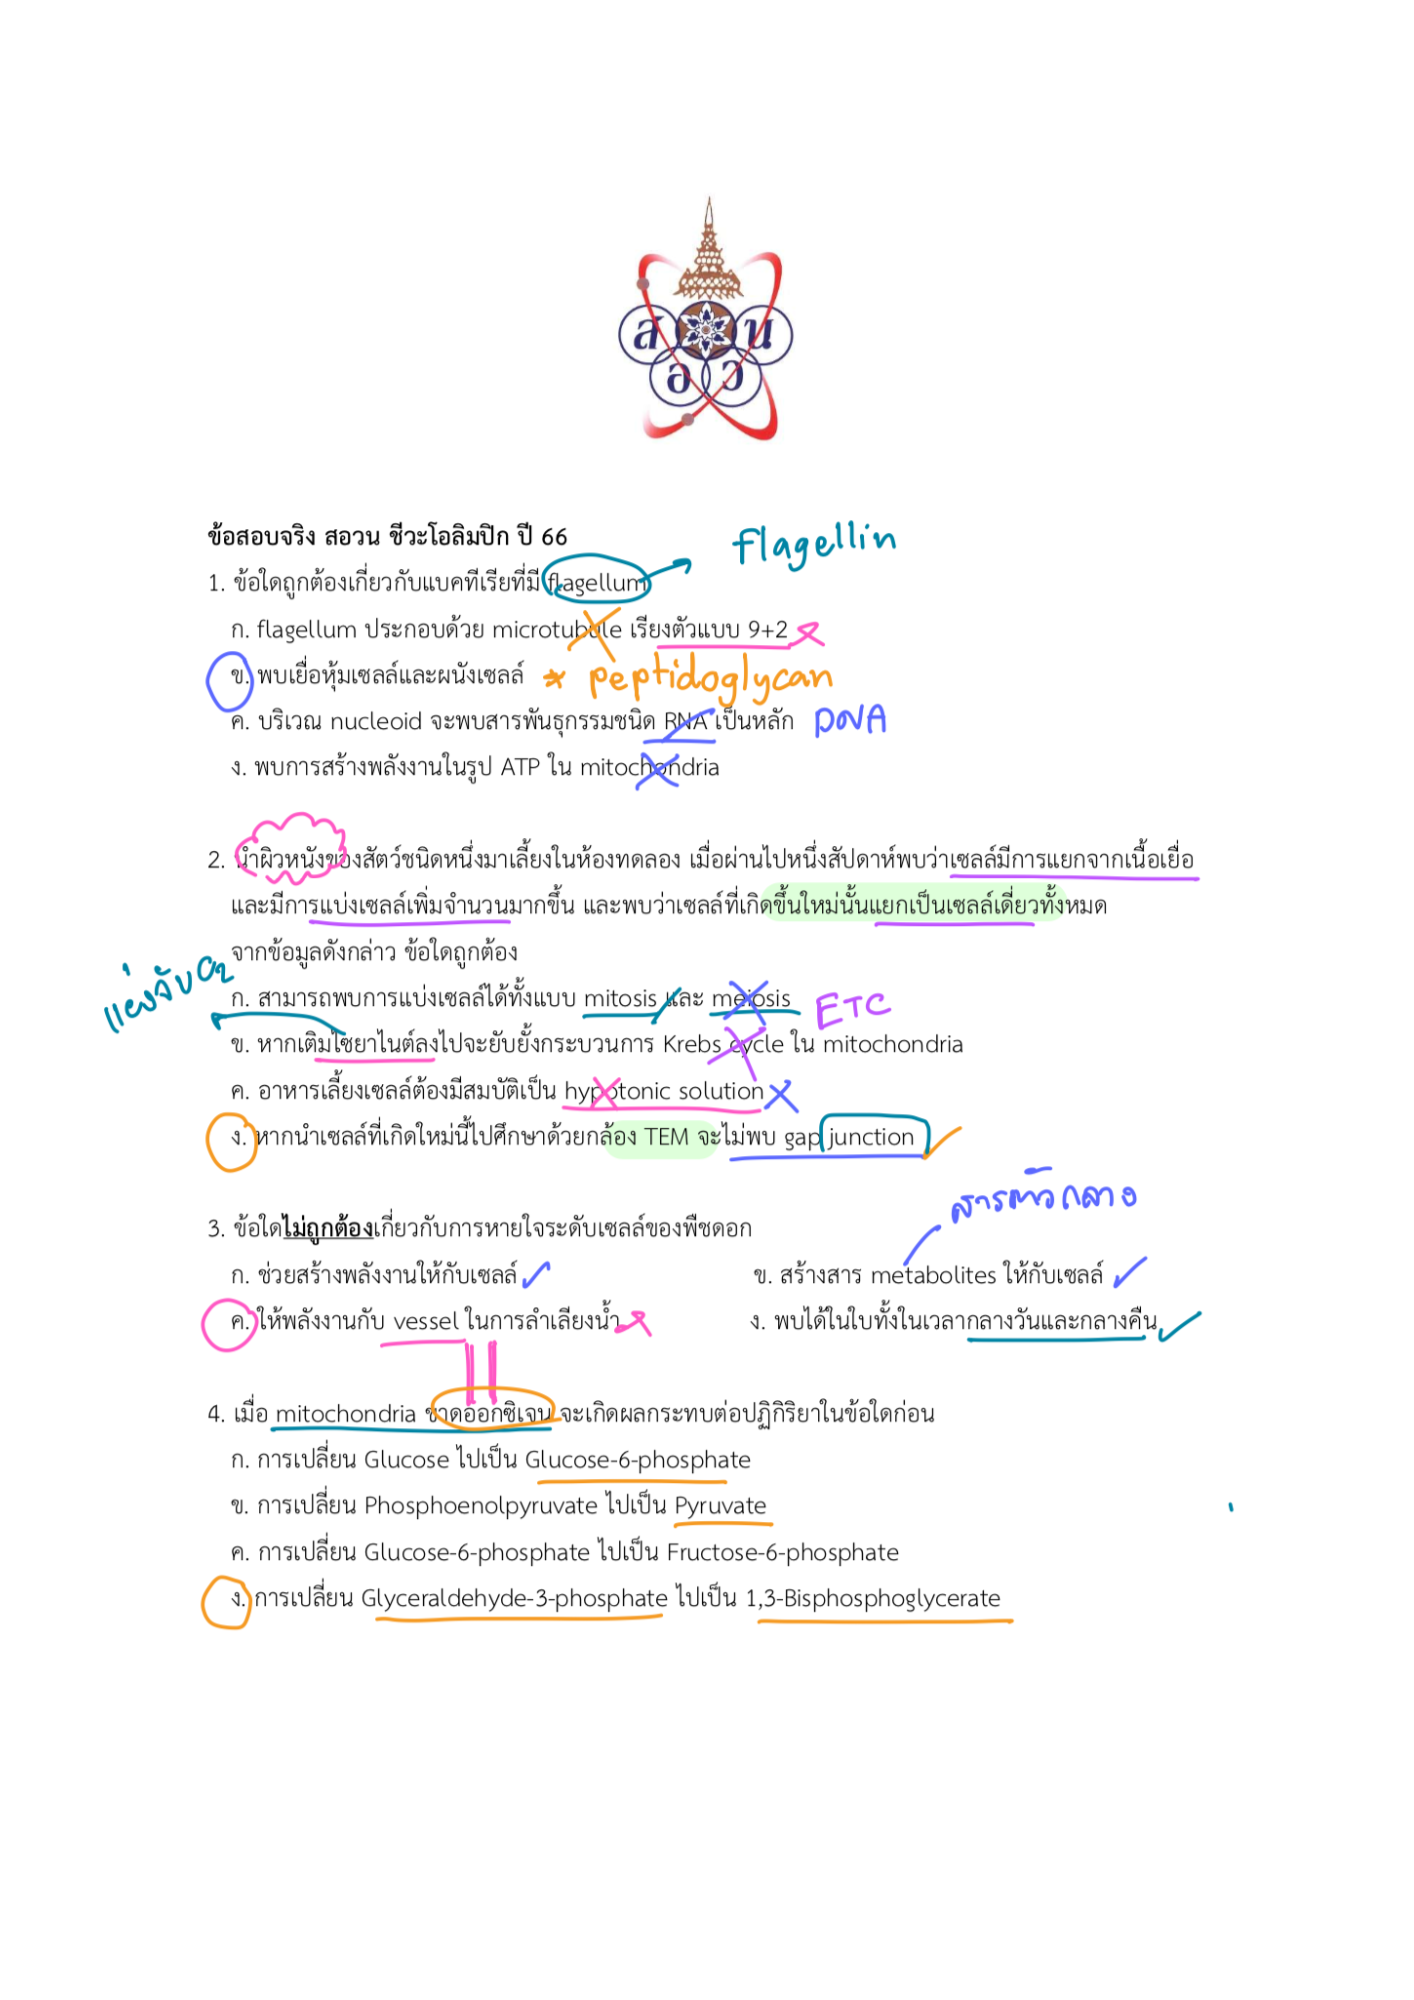 ส น
อ ว
ข้อสอบจริง สอวน ชีวะโอลิมปิก ปี 66
flagellin
1. ข้อใดถูกต้องเกี่ยวกับแบคทีเรียที่มี flagellum
ก. flagellum ประกอบด้วย microtubule เรียงตัวแบบ 9+2
ข. พบเยื่อหุ้มเซลล์และผนังเซลล์ * peptidoglycan
ค. บริเวณ nucleoid จะพบสารพันธุกรรมชนิด RNA เป็นหลัก DNA
ง. พบการสร้างพลังงานในรูป ATP ใน mitochondria
2. นำผิวหนังของสัตว์ชนิดหนึ่งมาเลี้ยงในห้องทดลอง เมื่อผ่านไปหนึ่งสัปดาห์พบว่าเซลล์มีการแยกจากเนื้อเยื่อ
และมีการแบ่งเซลล์เพิ่มจำนวนมากขึ้น และพบว่าเซลล์ที่เกิดขึ้นใหม่นั้นแยกเป็นเซลล์เดี่ยวทั้งหมด
จากข้อมูลดังกล่าว ข้อใดถูกต้อง
แย่งจับ O2
ก. สามารถพบการแบ่งเซลล์ได้ทั้งแบบ mitosis และ meiosis ETC
ข. หากเติมไซยาไนต์ลงไปจะยับยั้งกระบวนการ Krebs cycle ใน mitochondria
ค. อาหารเลี้ยงเซลล์ต้องมีสมบัติเป็น hypotonic solution
ง. หากนำเซลล์ที่เกิดใหม่นี้ไปศึกษาด้วยกล้อง TEM จะไม่พบ gap junction
สารตัวกลาง
3. ข้อใดไม่ถูกต้องเกี่ยวกับการหายใจระดับเซลล์ของพืชดอก
ก. ช่วยสร้างพลังงานให้กับเซลล์ ข. สร้างสาร metabolites ให้กับเซลล์
ค. ให้พลังงานกับ vessel ในการลำเลียงน้ำ ง. พบได้ในใบทั้งในเวลากลางวันและกลางคืน
4. เมื่อ mitochondria ขาดออกซิเจน จะเกิดผลกระทบต่อปฏิกิริยาในข้อใดก่อน
ก. การเปลี่ยน Glucose ไปเป็น Glucose-6-phosphate
ข. การเปลี่ยน Phosphoenolpyruvate ไปเป็น Pyruvate
ค. การเปลี่ยน Glucose-6-phosphate ไปเป็น Fructose-6-phosphate
ง. การเปลี่ยน Glyceraldehyde-3-phosphate ไปเป็น 1,3-Bisphosphoglycerate